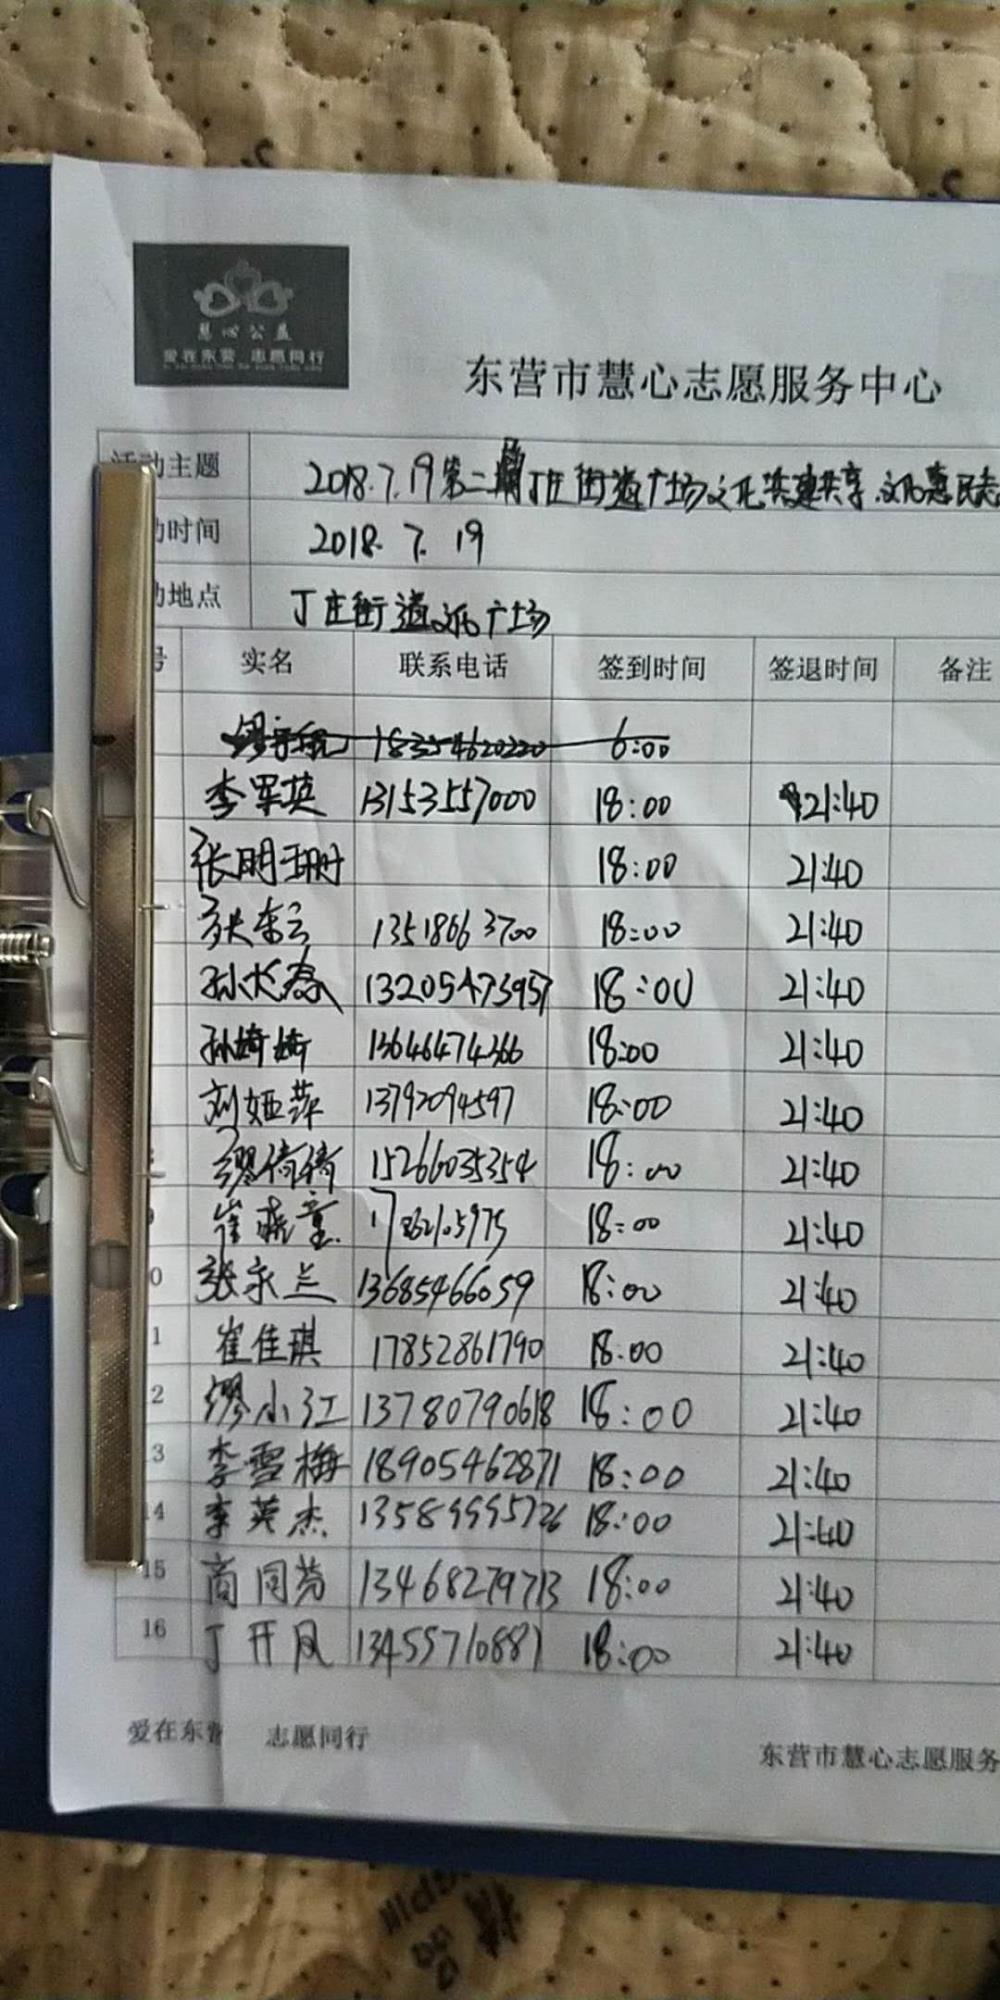 慧心公益
爱在东营 志愿同行
东营市慧心志愿服务中心
活动主题 2018.7.19第二期丁庄街道广场文化共建共享.文化惠民志
动时间 2018.7.19
动地点 丁庄街道文化广场
号 实名 联系电话 签到时间 签退时间 备注
18354620220 6:00
李军英 13153557000 18:00 21:40
张明珊 18:00 21:40
张东云 13518663700 18:00 21:40
孙长春 13205473957 18:00 21:40
孙婍婍 13646474366 18:00 21:40
刘娅萍 13792094597 18:00 21:40
缪倩倩 15266035354 18:00 21:40
9 崔薇童 17862105975 18:00 21:40
0 张永兰 13685466059 18:00 21:40
1 崔佳琪 17852861790 18:00 21:40
2 缪小江 13780790618 18:00 21:40
3 李雪梅 18905462871 18:00 21:40
14 李英杰 13589995726 18:00 21:40
15 商同芳 13468279713 18:00 21:40
16 丁开风 13455710881 18:00 21:40
爱在东营 志愿同行
东营市慧心志愿服务